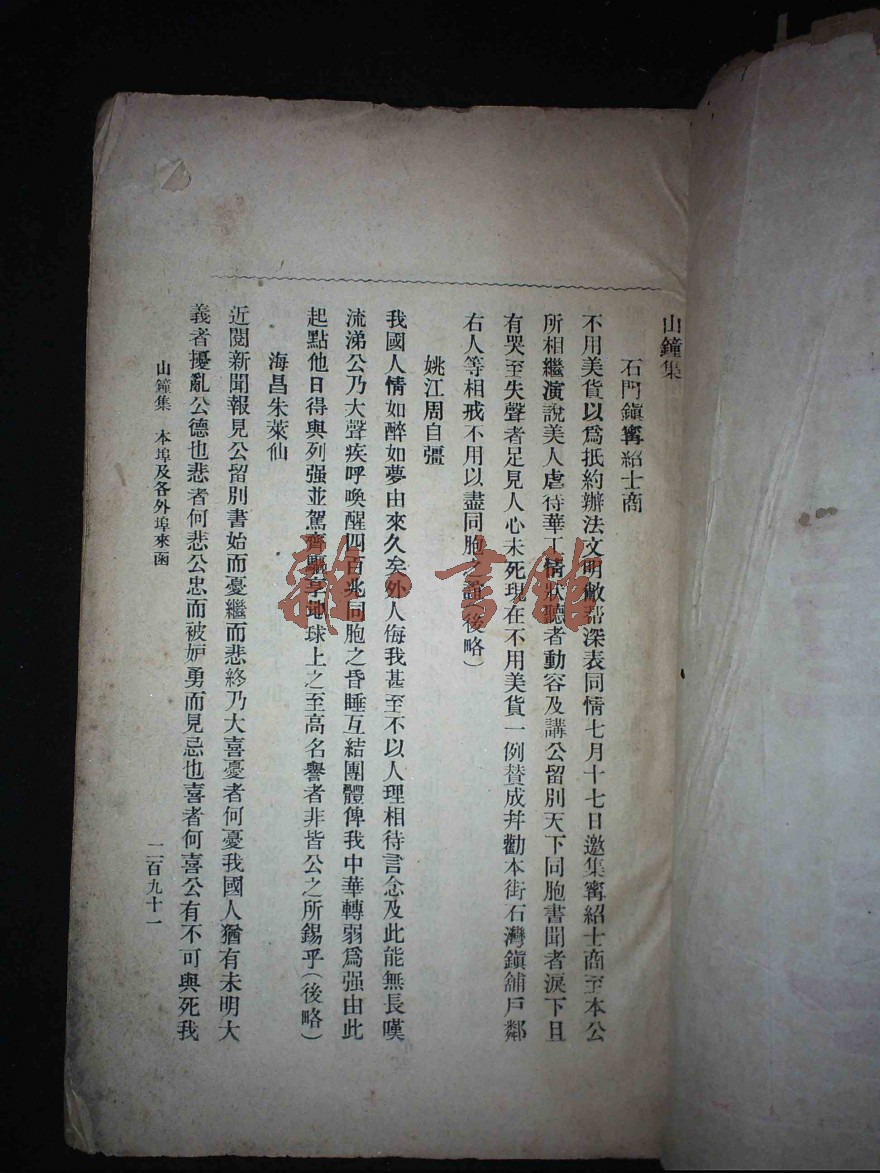 山鐘集
石門鎭寗紹士商
不用美貨以爲抵約辦法文明敝帮深表同情七月十七日邀集寗紹士商至本公
所相繼演說美人虐待華工情狀聽者動容及講公留別天下同胞書聞者淚下且
有哭至失聲者足見人心未死現在不用美貨一例賛成幷勸本街石灣鎭舖戶鄰
右人等相戒不用以盡同胞之誼(後略)
姚江周自彊
我國人情如醉如夢由來久矣外人侮我甚至不以人理相待言念及此能無長嘆
流涕公乃大聲疾呼喚醒四百兆同胞之昏睡互結團體俾我中華轉弱爲强由此
起點他日得與列强並駕齊驅享地球上之至高名譽者非皆公之所錫乎(後略)
海昌朱萊仙
近閱新聞報見公留別書始而憂繼而悲終乃大喜憂者何憂我國人猶有未明大
義者擾亂公德也悲者何悲公忠而被妒勇而見忌也喜者何喜公有不可與死我
山鐘集 本埠及各外埠來函 二百九十一
雜·書館